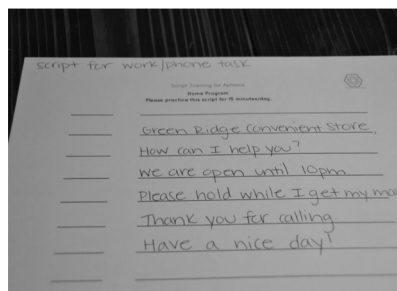 script for work/phone task
Script Training for Aphasia
Home Program
Please practice this script for 15 minutes/day.
Green Ridge Convenient Store,
How can I help you?
We are open until 10pm
Please hold while I get my ma
Thank you for calling
Have a nice day!